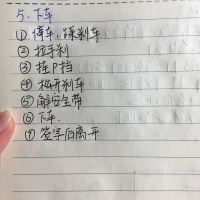 5. 下车
① 停车,踩刹车
② 拉手刹
③ 挂P挡
④ 松开刹车
⑤ 解安全带
⑥ 下车.
⑦ 签字后离开